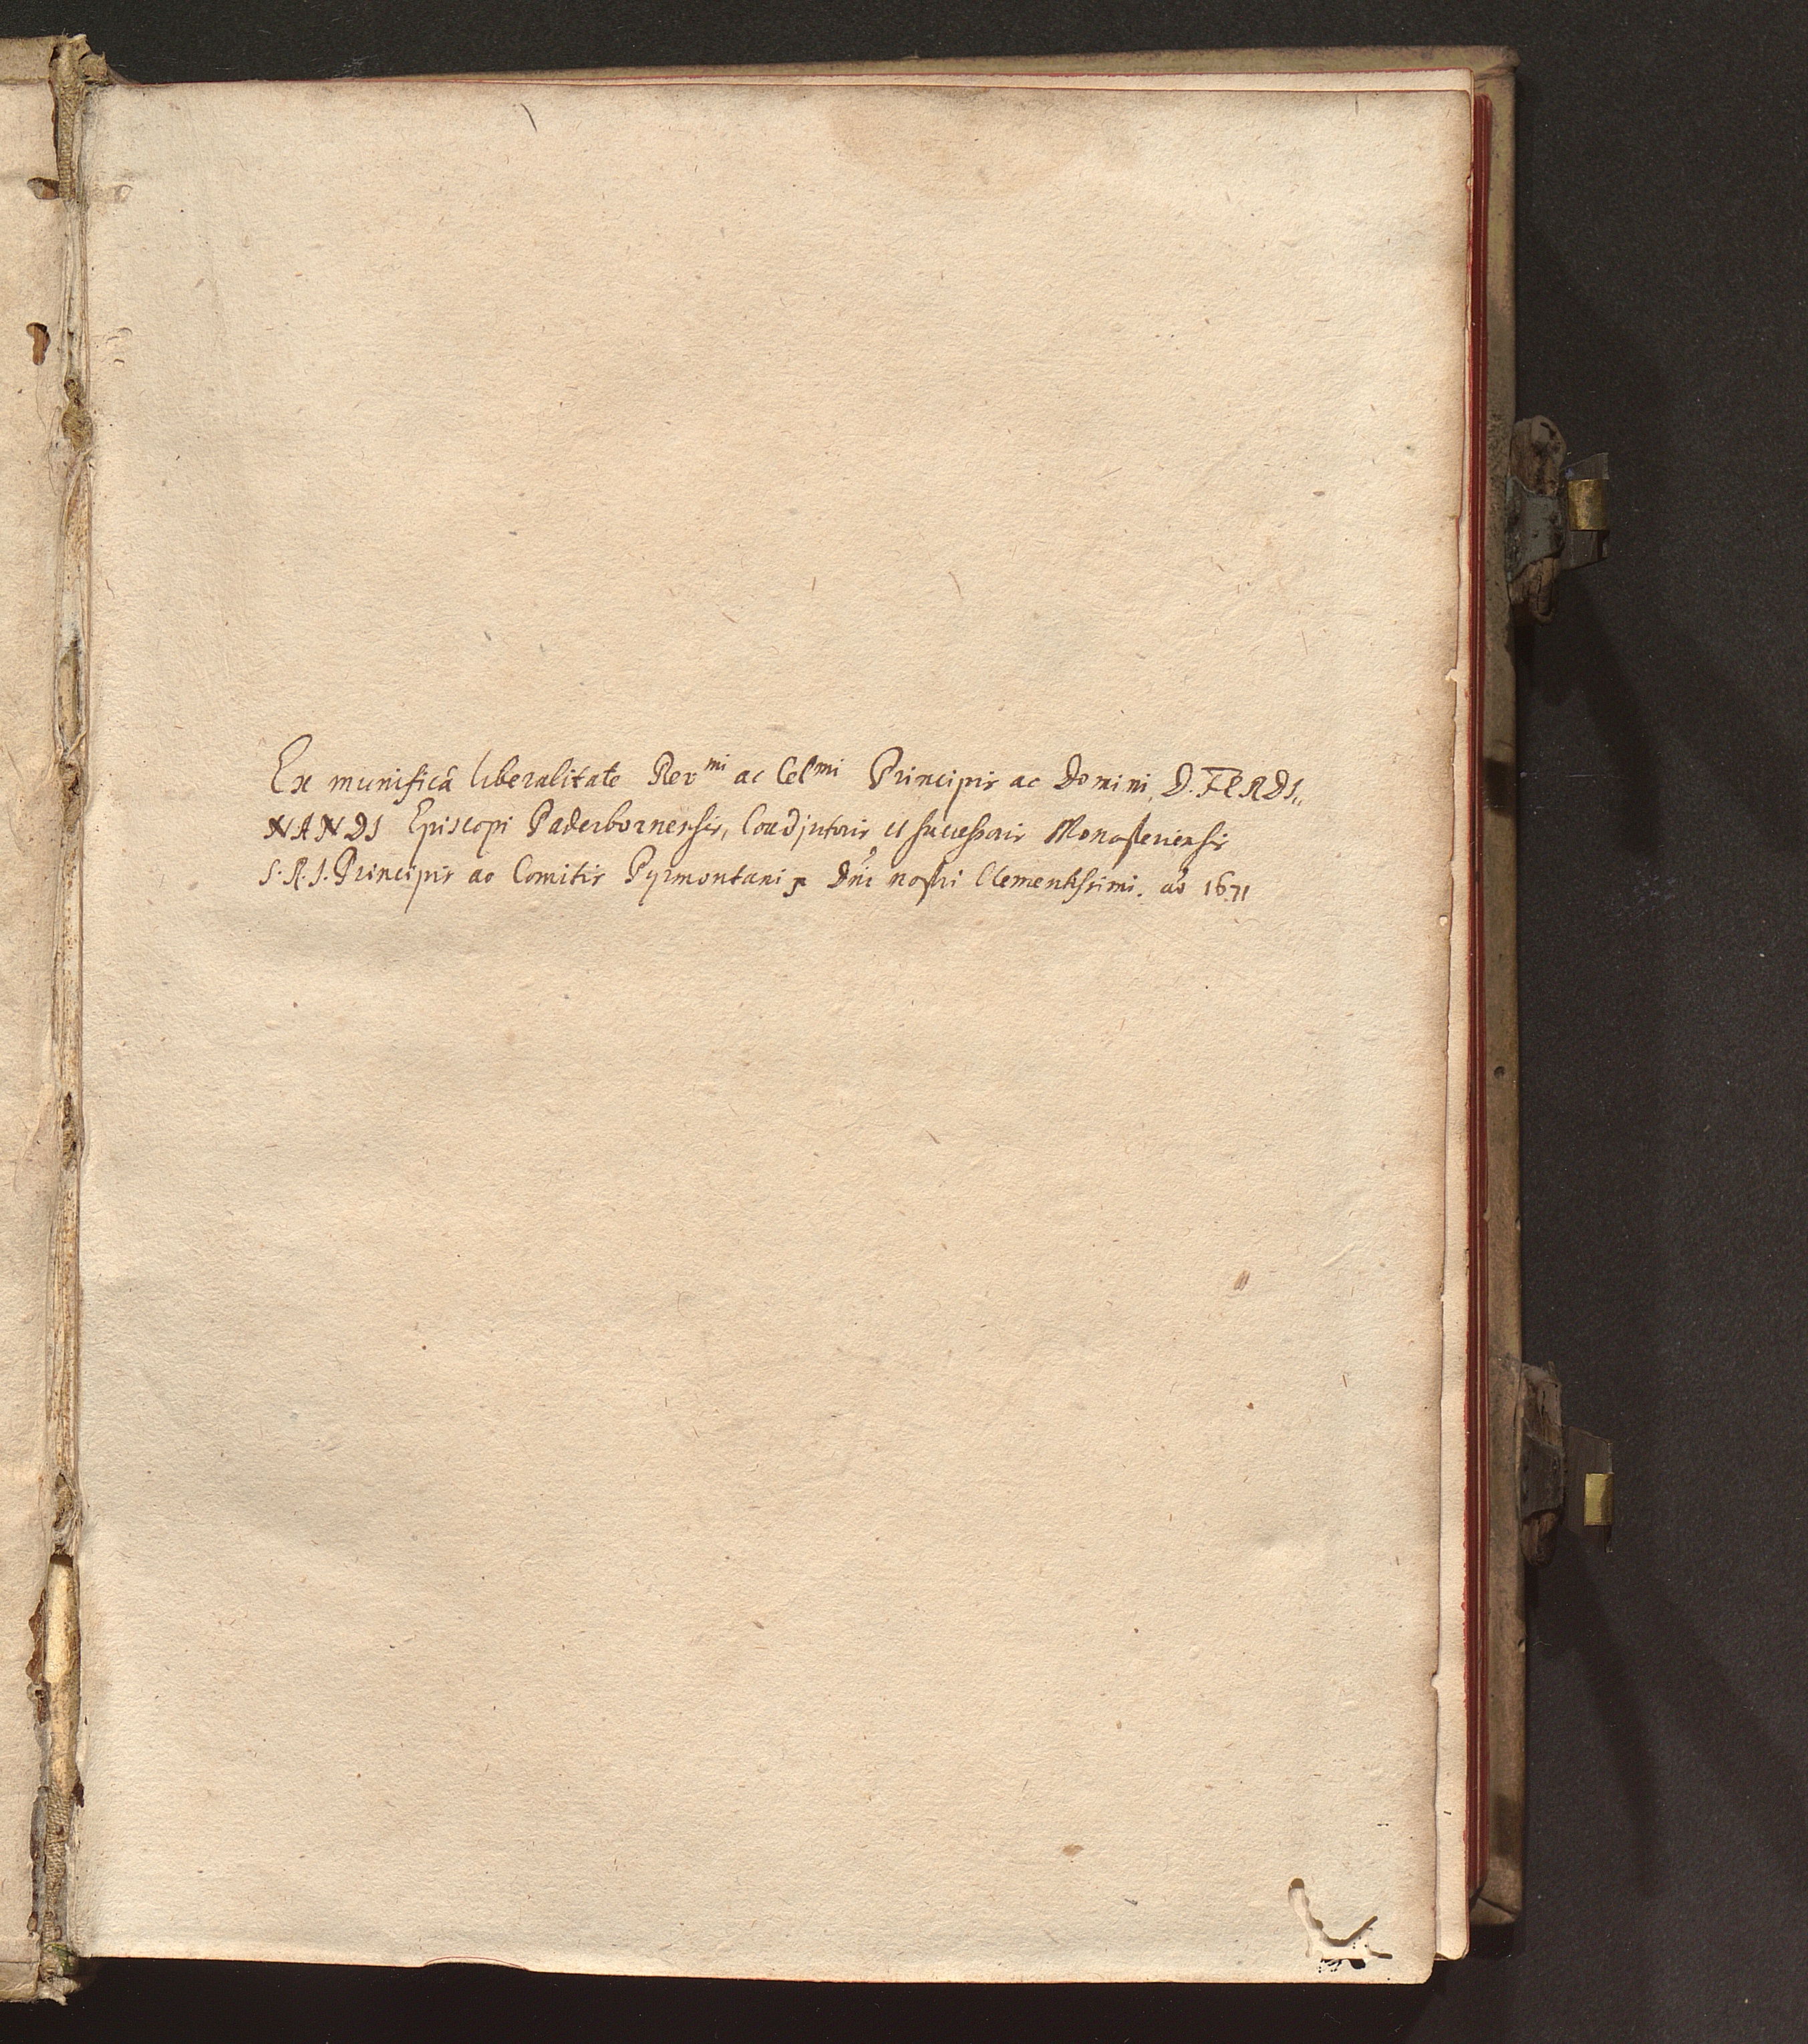 Ex munificâ liberalitate Rev^mi ac Cel^mi Principis ac Domini, D. FERDI„
NANDI Episcopi Paderbornensis, Coadjutoris et successoris Monasteriensis
S. R. I. Principis ac Comitis Pyrmontani p Dni nostri Clementissimi. aō 1671